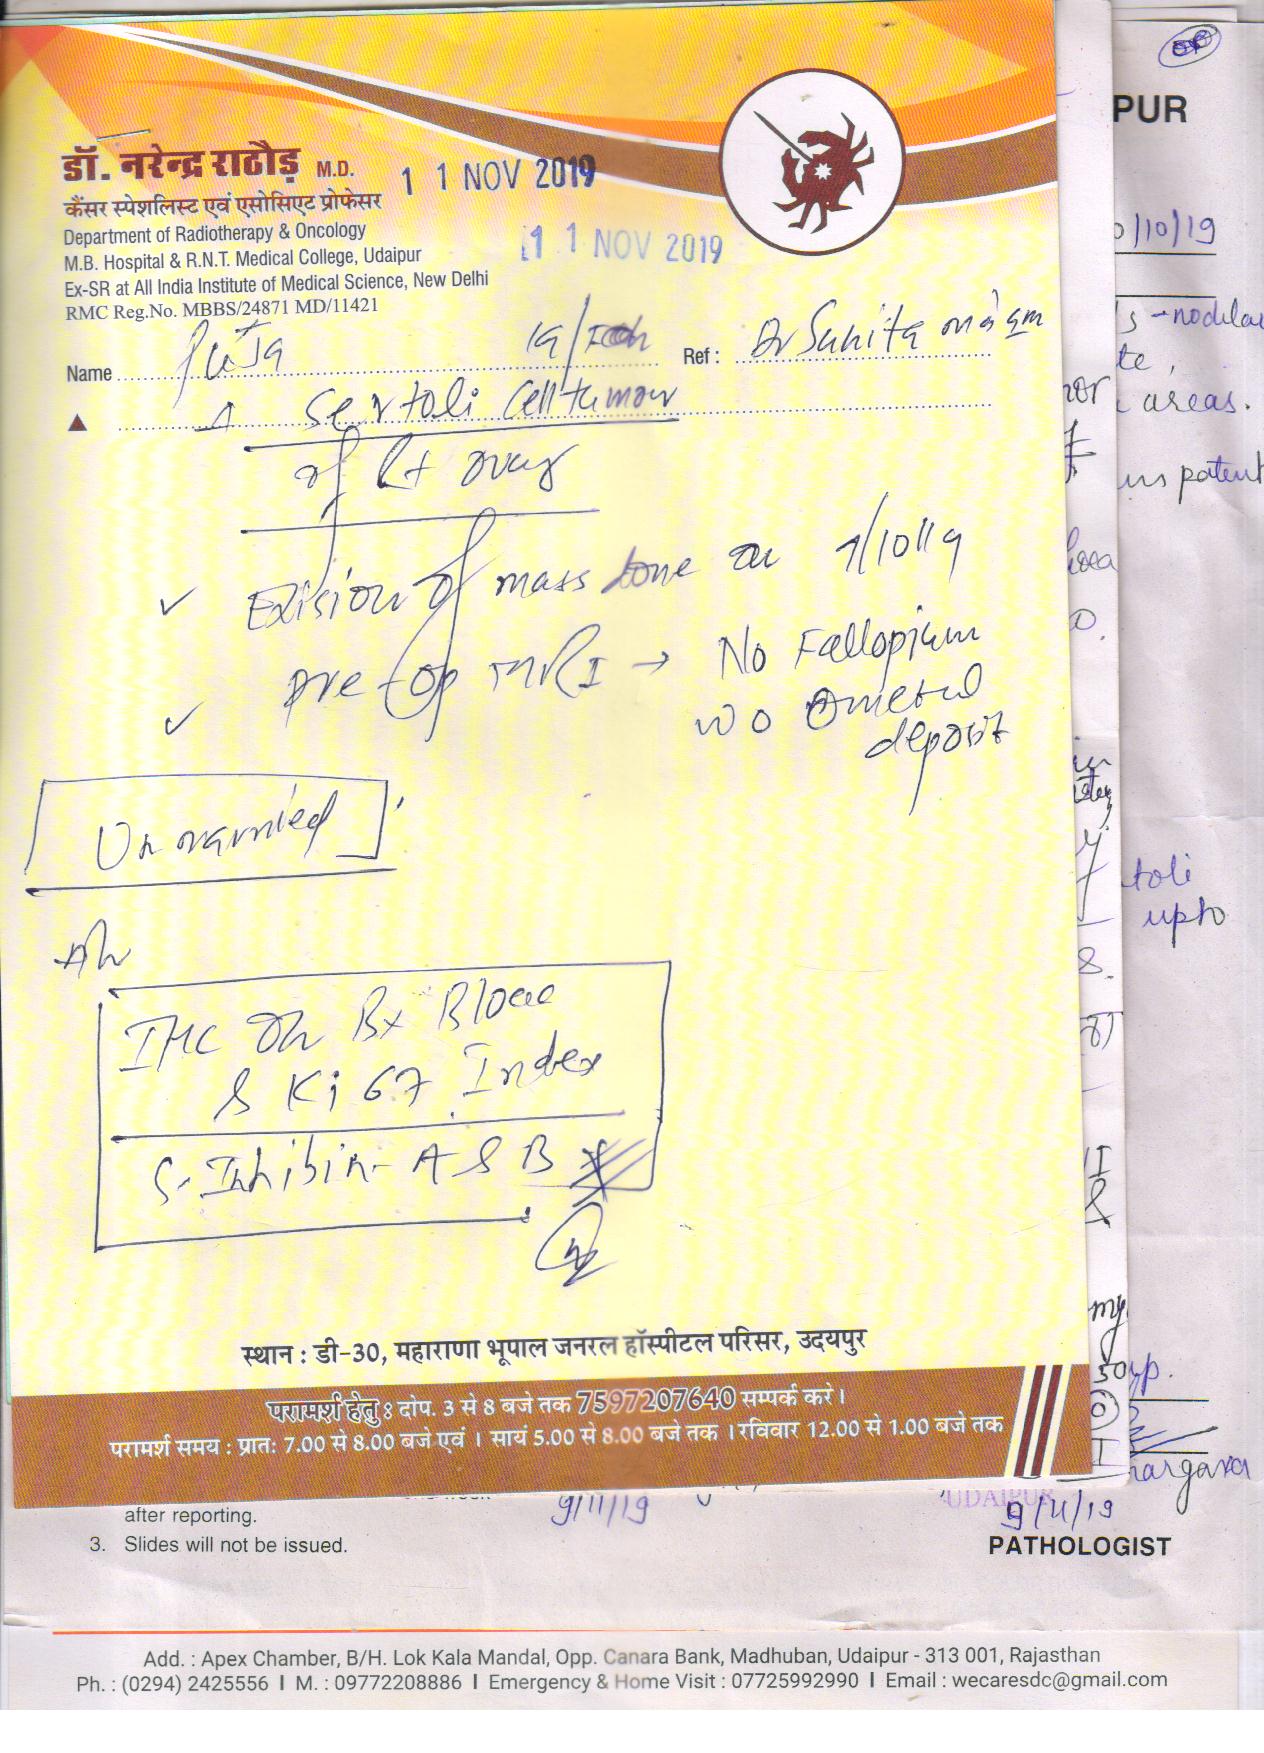 PUR
0/10/19
डॉ. नरेन्द्र राठौड़ M.D.
11 NOV 2019
कैंसर स्पेशलिस्ट एवं एसोसिएट प्रोफेसर
Department of Radiotherapy & Oncology
11 NOV 2019
M.B. Hospital & R.N.T. Medical College, Udaipur
Ex-SR at All India Institute of Medical Science, New Delhi
RMC Reg.No. MBBS/24871 MD/11421
Name Puja 19/ Ref : Dr Sunita ma'am
Sertoli Cell tumour
of Rt ovary
Exision of mass done on 7/10/19
pre op MRI → No Fallopium
no omental
deposit
Unmarried
Adv
IHC on Bx Block
& Ki 67 Index
S. Inhibin - A & B
areas.
patent
toli
upto
स्थान : डी-30, महाराणा भूपाल जनरल हॉस्पीटल परिसर, उदयपुर
परामर्श हेतु : दोप. 3 से 8 बजे तक 7597207640 सम्पर्क करे।
परामर्श समय : प्रातः 7.00 से 8.00 बजे एवं । सायं 5.00 से 8.00 बजे तक । रविवार 12.00 से 1.00 बजे तक
after reporting.
9/11/19
UDAIPUR
9/11/19
3. Slides will not be issued.
PATHOLOGIST
Add. : Apex Chamber, B/H. Lok Kala Mandal, Opp. Canara Bank, Madhuban, Udaipur - 313 001, Rajasthan
Ph. : (0294) 2425556 I M. : 09772208886 I Emergency & Home Visit : 07725992990 I Email : wecaresdc@gmail.com